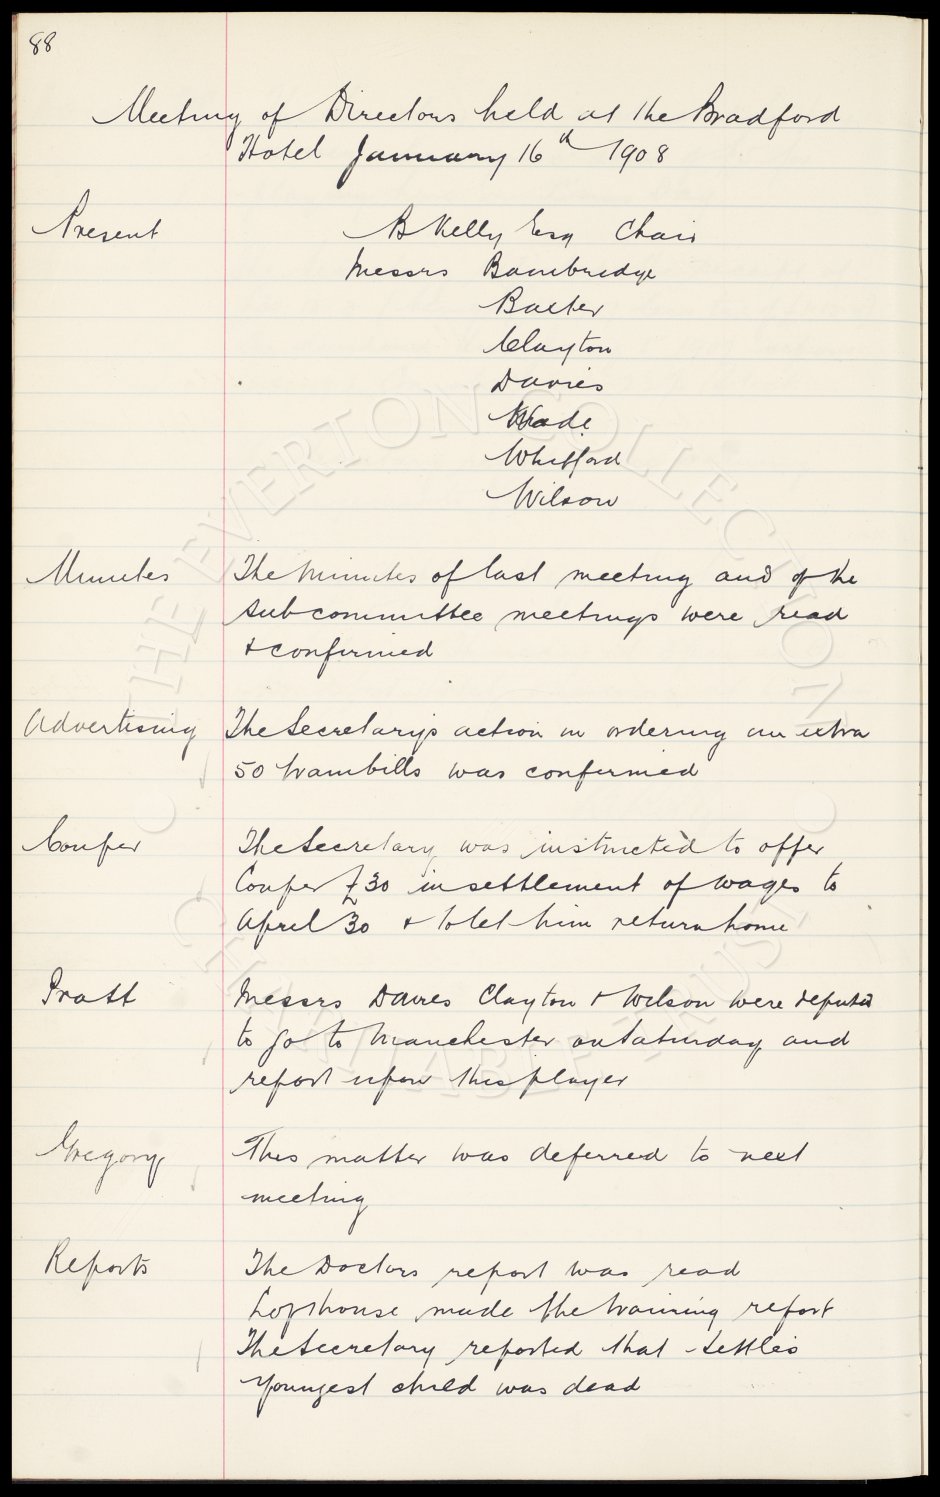 88
Meeting of Directors held at the Bradford
Hotel January 16th 1908
Present B Kelly Esq Chair
Messrs Bainbridge
Baxter
Clayton
Davies
Wade
Whitford
Wilson
Minutes The Minutes of last meeting and of the
subcommittee meetings were read
& confirmed
Advertising The Secretary's action in ordering an extra
50 trambills was confirmed
Couper The Secretary was instructed to offer
Couper £30 in settlement of wages to
April 30 & to let him return home
Pratt Messrs Davies Clayton & Wilson were deputed
to go to Manchester on Saturday and
report upon this player
Gregory This matter was deferred to next
meeting
Reports The Doctors report was read
Lofthouse made the training report
The Secretary reported that Settle's
youngest child was dead
THE EVERTON COLLECTION
CHARITABLE TRUST